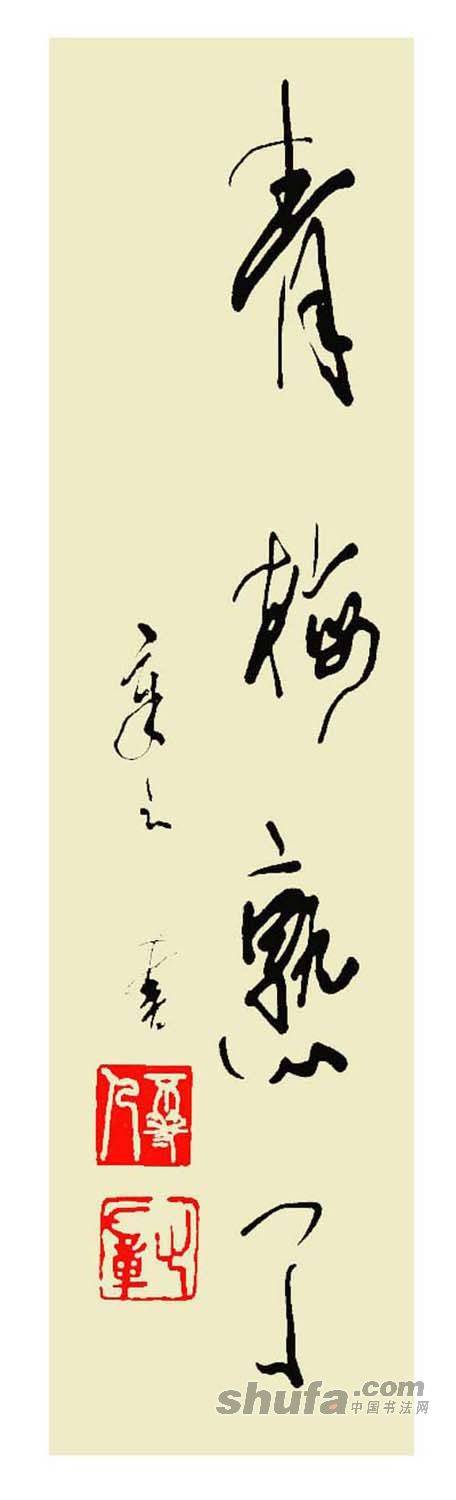 青梅熟了
章之书
shufa.com
中国书法网